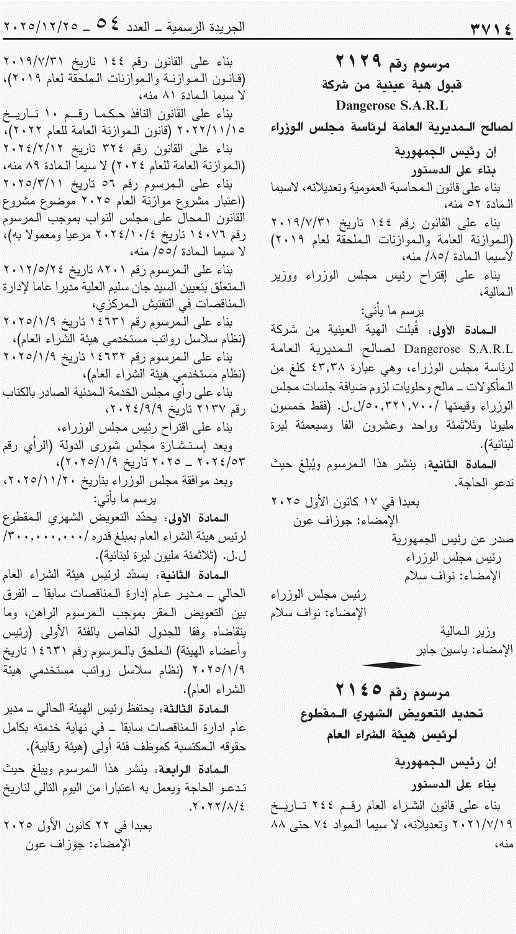 ٣٧١٤
الجريدة الرسمية ــ العدد ٥٤ ــ ٢٠٢٥/١٢/٢٥
مرسوم رقم ٢١٢٩
قبول هبة عينية من شركة
Dangerose S.A.R.L
لصالح المديرية العامة لرئاسة مجلس الوزراء
إن رئيس الجمهورية
بناء على الدستور
بناء على قانون المحاسبة العمومية وتعديلاته، لاسيما
المادة ٥٢ منه،
بناء على القانون رقم ١٤٤ تاريخ ٢٠١٩/٧/٣١
(الموازنة العامة والموازنات الملحقة لعام ٢٠١٩)
لاسيما المادة /٨٥/ منه،
بناء على إقتراح رئيس مجلس الوزراء ووزير
المالية،
يرسم ما يأتي:
المادة الأولى: قُبلت الهبة العينية من شركة
Dangerose S.A.R.L لصالح المديرية العامة
لرئاسة مجلس الوزراء، وهي عبارة ٤٣,٣٨ كلغ من
المأكولات ــ مالح وحلويات لزوم ضيافة جلسات مجلس
الوزراء وقيمتها /٥٠,٣٢١,٧٠٠/ل.ل. (فقط خمسون
مليونا وثلاثمئة وواحد وعشرون الفا وسبعمئة ليرة
لبنانية).
المادة الثانية: ينشر هذا المرسوم ويُبلغ حيث
تدعو الحاجة.
بعبدا في ١٧ كانون الأول ٢٠٢٥
الإمضاء: جوزاف عون
صدر عن رئيس الجمهورية
رئيس مجلس الوزراء
الإمضاء: نواف سلام
رئيس مجلس الوزراء
الإمضاء: نواف سلام
وزير المالية
الإمضاء: ياسين جابر
مرسوم رقم ٢١٤٥
تحديد التعويض الشهري المقطوع
لرئيس هيئة الشراء العام
إن رئيس الجمهورية
بناء على الدستور
بناء على قانون الشراء العام رقم ٢٤٤ تاريخ
٢٠٢١/٧/١٩ وتعديلاته، لا سيما المواد ٧٤ حتى ٨٨
منه،
بناء على القانون ١٤٤ تاريخ ٢٠١٩/٧/٣١
(قانون الموازنة والموازنات الملحقة لعام ٢٠١٩)،
لا سيما المادة ٨١ منه،
بناء على القانون النافذ حكما رقم ١٠ تاريخ
٢٠٢٢/١١/١٥ (قانون الموازنة العامة للعام ٢٠٢٢)،
بناء على القانون رقم ٣٢٤ تاريخ ٢٠٢٤/٢/١٢
(الموازنة العامة للعام ٢٠٢٤) لا سيما المادة ٨٩ منه،
بناء على المرسوم رقم ٥٦ تاريخ ٢٠٢٥/٣/١١
(اعتبار مشروع موازنة العام ٢٠٢٥ موضوع مشروع
القانون المحال على مجلس النواب بموجب المرسوم
رقم ١٤٠٧٦ تاريخ ٢٠٢٤/١٠/٤ مرعيا ومعمولا به)،
لا سيما المادة /٥٥/ منه،
بناء على المرسوم رقم ٨٢٠١ تاريخ ٢٠١٢/٥/٢٤
المتعلق بتعيين السيد جان سليم العلية مديرا عاما لإدارة
المناقصات في التفتيش المركزي،
بناء على المرسوم رقم ١٤٦٣١ تاريخ ٢٠٢٥/١/٩
(نظام سلاسل رواتب مستخدمي هيئة الشراء العام)،
بناء على المرسوم رقم ١٤٦٣٢ تاريخ ٢٠٢٥/١/٩
(نظام مستخدمي هيئة الشراء العام)،
بناء على رأي مجلس الخدمة المدنية الصادر بالكتاب
رقم ٢١٣٧ تاريخ ٢٠٢٤/٩/٩،
بناء على اقتراح رئيس مجلس الوزراء،
وبعد إستشارة مجلس شورى الدولة (الرأي رقم
٢٠٢٤/٥٣ ــ ٢٠٢٥ تاريخ ٢٠٢٥/١/٩)،
وبعد موافقة مجلس الوزراء بتاريخ ٢٠٢٥/١١/٢٠،
يرسم ما يأتي:
المادة الأولى: يحدّد التعويض الشهري المقطوع
لرئيس هيئة الشراء العام بمبلغ قدره /٣٠٠,٠٠٠,٠٠٠/
ل.ل. (ثلاثمئة مليون ليرة لبنانية).
المادة الثانية: يسدّد لرئيس هيئة الشراء العام
الحالي ــ مدير عام إدارة المناقصات سابقا ــ الفرق
بين التعويض المقر بموجب المرسوم الراهن، وما
يتقاضاه وفقا للجدول الخاص بالفئة الأولى (رئيس
وأعضاء الهيئة) الملحق بالمرسوم رقم ١٤٦٣١ تاريخ
٢٠٢٥/١/٩ (نظام سلاسل رواتب مستخدمي هيئة
الشراء العام).
المادة الثالثة: يحتفظ رئيس الهيئة الحالي ــ مدير
عام ادارة المناقصات سابقا ــ في نهاية خدمته بكامل
حقوقه المكتسبة كموظف فئة أولى (هيئة رقابية).
المادة الرابعة: ينشر هذا المرسوم ويبلغ حيث
تدعو الحاجة ويعمل به اعتبارا من اليوم التالي لتاريخ
٢٠٢٢/٨/٤.
بعبدا في ٢٢ كانون الأول ٢٠٢٥
الإمضاء: جوزاف عون